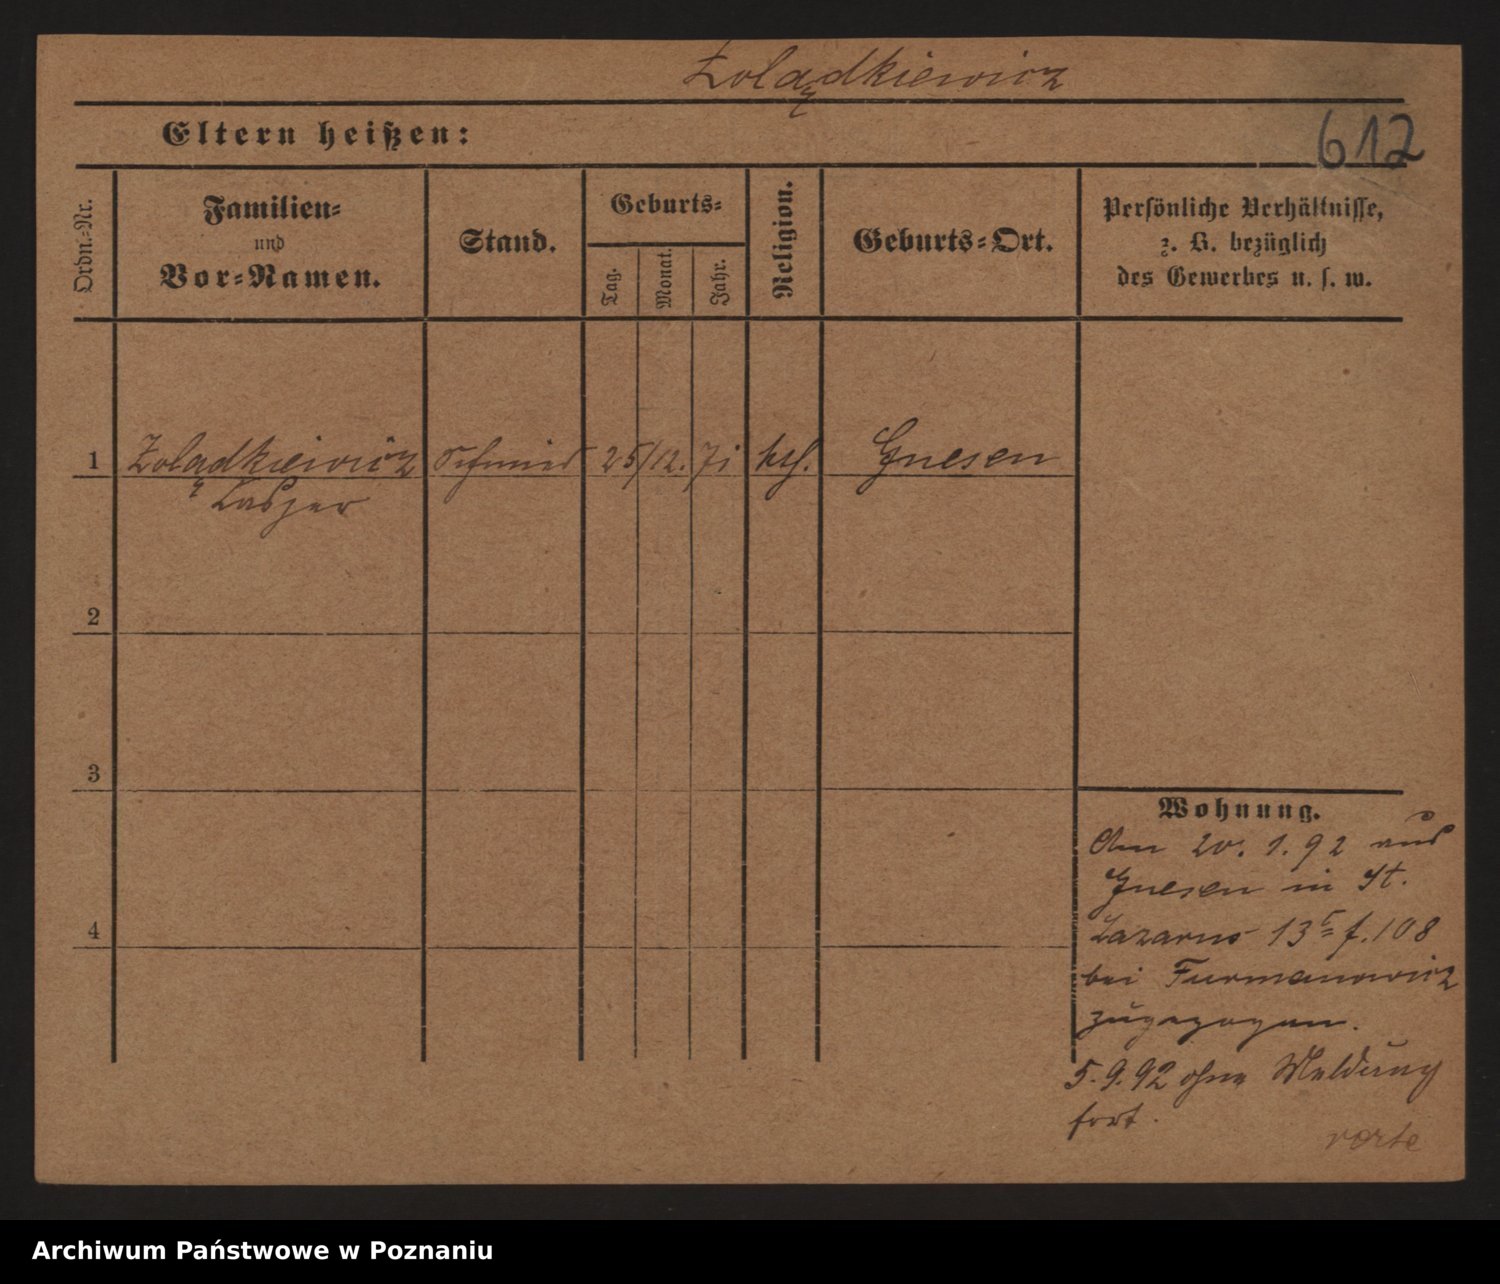 Żolądkiewicz
612
Eltern heißen:
Ordn.-Nr.
Familien-
und
Vor-Namen.
Stand.
Geburts-
Tag.
Monat.
Jahr.
Religion.
Geburts-Ort.
Persönliche Verhältnisse,
z. B. bezüglich
des Gewerbes u. s. w.
1 Zolądkiewicz Schmied 25/12. 71 kth. Gnesen
Kasper
2
3
4
Wohnung.
Am 20. 1. 92 aus
Gnesen in St.
Lazarus 13 f. 108
bei Furmanowicz
zugezogen.
5. 9. 92 ohne Meldung
fort.
verte
Archiwum Państwowe w Poznaniu